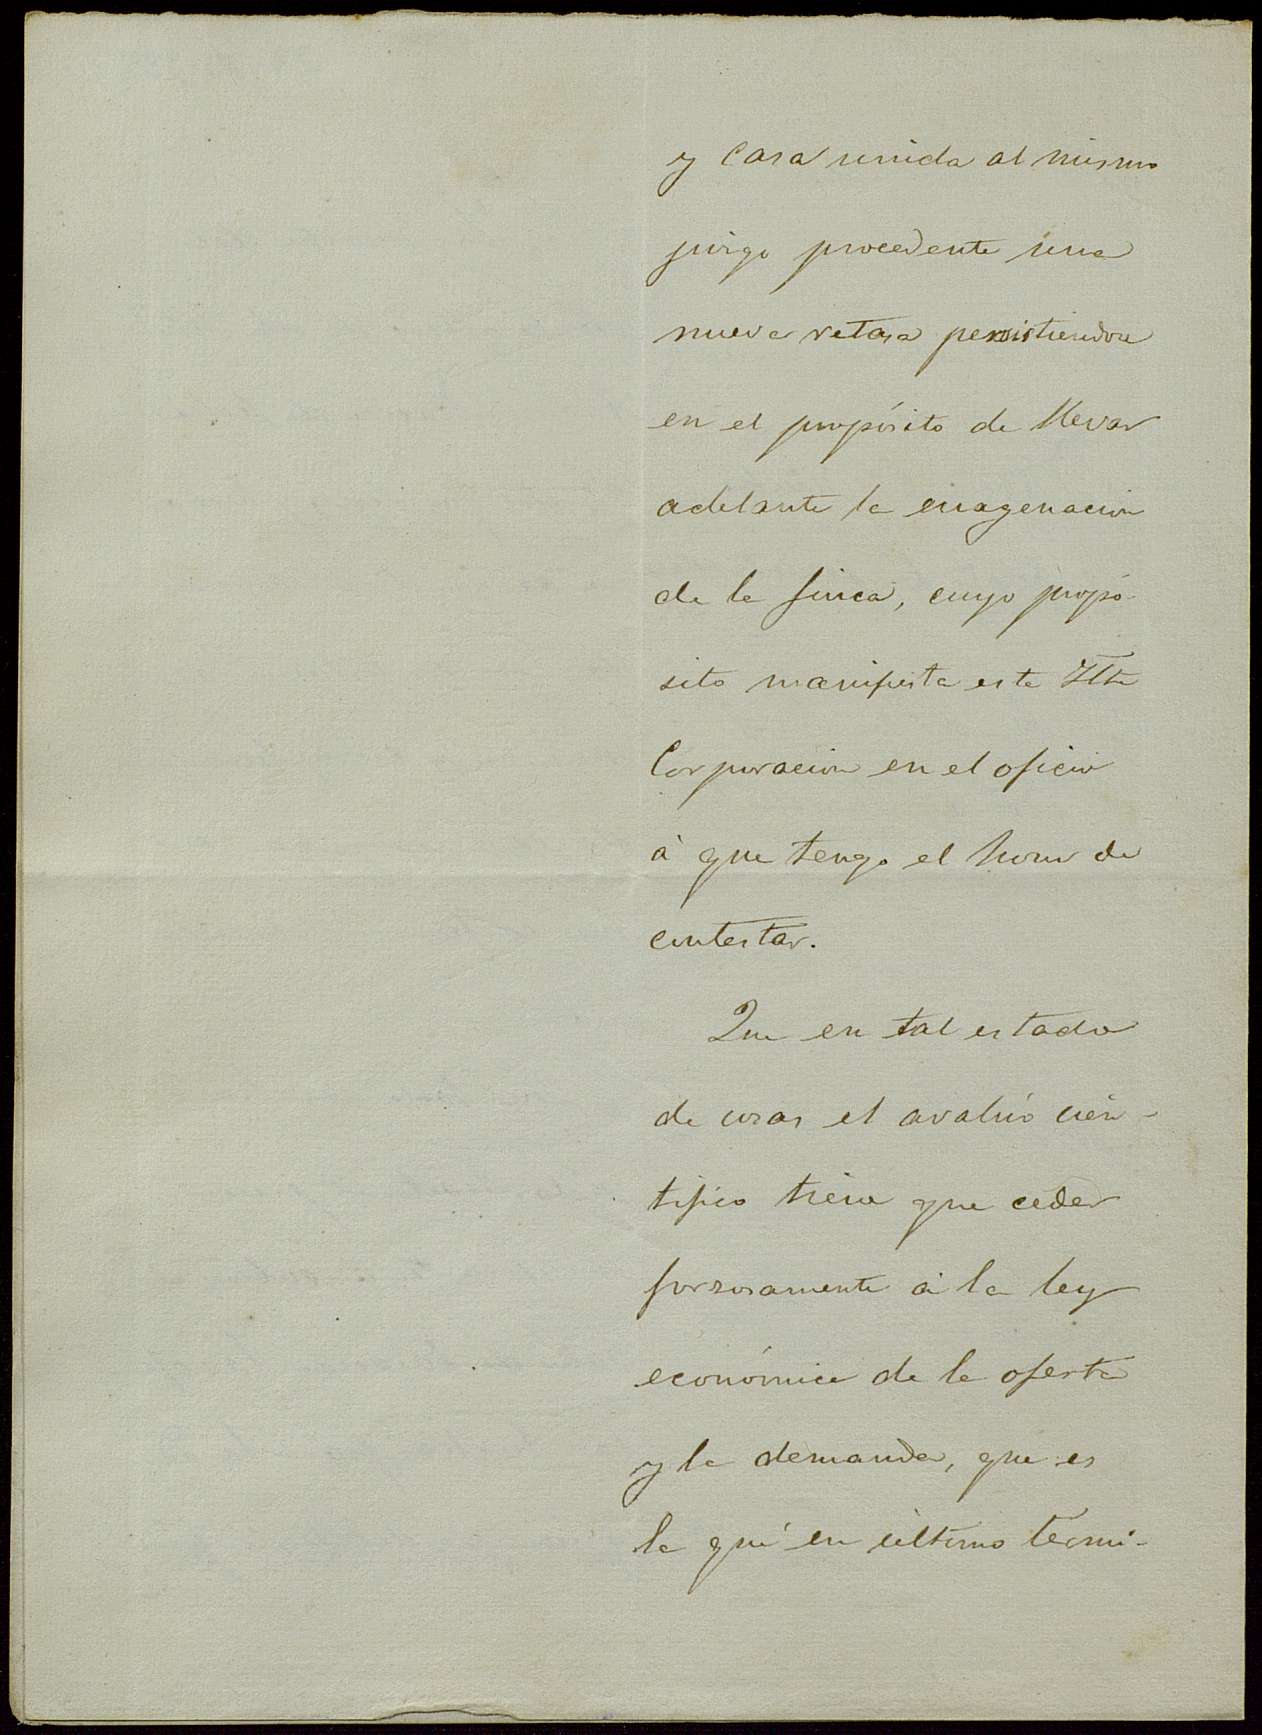 y Casa unida al mismo
juzgo procedente una
nueva retasa persistiendose
en el propósito de llevar
adelante la enagenacion
de la finca, cuyo propó-
sito manifiesta esta Iltre
Corporacion en el oficio
á que tengo el honor de
contestar.
Que en tal estado
de cosas el avalúo cien-
tifico tiene que ceder
forzosamente á la ley
económica de la oferta
y la demanda, que es
la que en último térmi-